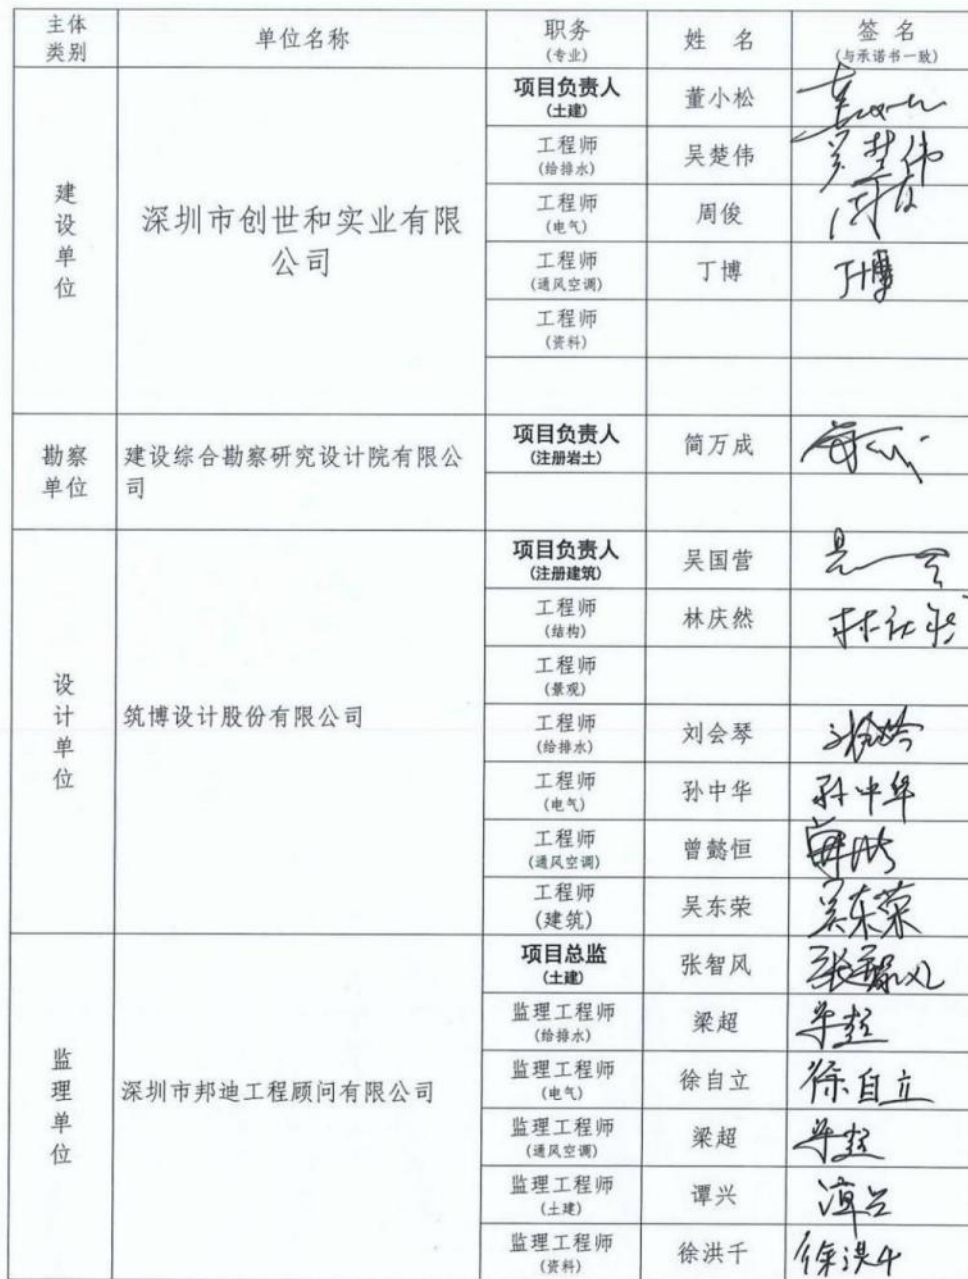 主体类别 单位名称 职务(专业) 姓 名 签 名(与承诺书一致)
建设单位
深圳市创世和实业有限
公司
项目负责人(土建) 董小松
工程师(给排水) 吴楚伟 吴楚伟
工程师(电气) 周俊 周俊
工程师(通风空调) 丁博 丁博
工程师(资料)
勘察单位
建设综合勘察研究设计院有限公
司
项目负责人(注册岩土) 简万成
设计单位
筑博设计股份有限公司
项目负责人(注册建筑) 吴国营
工程师(结构) 林庆然 林庆然
工程师(景观)
工程师(给排水) 刘会琴
工程师(电气) 孙中华 孙中华
工程师(通风空调) 曾懿恒
工程师(建筑) 吴东荣 吴东荣
监理单位
深圳市邦迪工程顾问有限公司
项目总监(土建) 张智风 张智风
监理工程师(给排水) 梁超 梁超
监理工程师(电气) 徐自立 徐自立
监理工程师(通风空调) 梁超 梁超
监理工程师(土建) 谭兴 谭兴
监理工程师(资料) 徐洪千 徐洪千